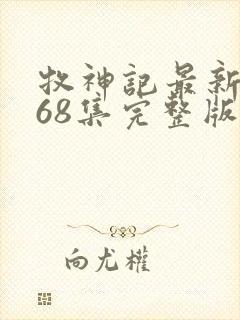 牧神记最新
68集完整版
向尤權